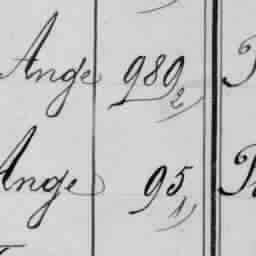 Ange 989 2)
Ange 95 1)